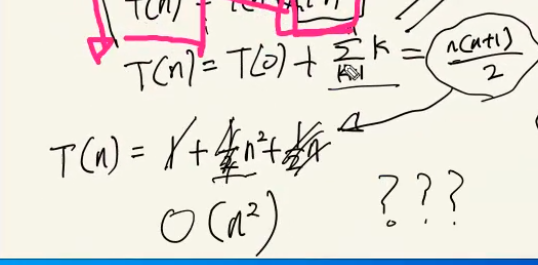 T(n) =
T(n) = T(0) + ∑ k = n(n+1)/2
T(n) = 1 + 1/2 n² + 1/2 n
O(n²)
???